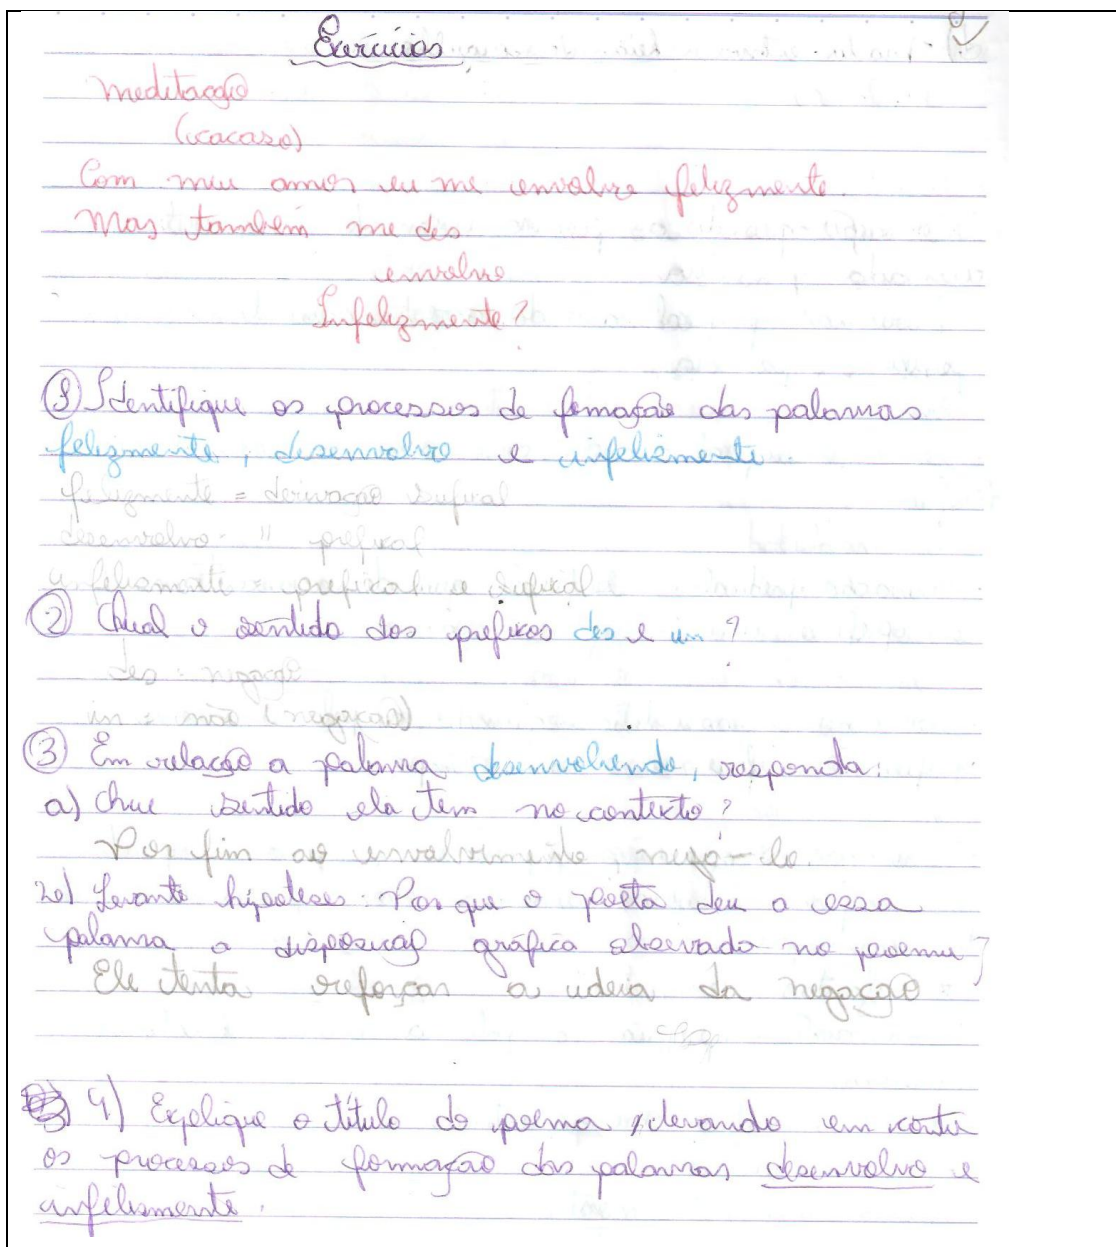 Exercícios
meditação
(cacaso)
Com meu amor eu me envolvo felizmente.
Mas também me des
envolvo
Infelizmente?
① Identifique os processos de fomação das palavras
felizmente, desenvolvo e infelismente.
felizmente = derivação sufixal
desenvolvo = " prefixal
infelismente = prefixal e sufixal
② Qual o sentido dos prefixos des e in ?
des = negação
in = não (negação)
③ Em relação a palavra desenvolvendo, responda:
a) Que sentido ela tem no contexto?
Por fim ao envolvimento, negá-lo.
Levante hipoteses: Por que o poeta deu a essa
palavra a disposição gráfica observada no poema?
Ele tenta reforçar a ideia da negação
4) Explique o título do poema, levando em conta
os processos de formação das palavras desenvolvo e
infelismente.